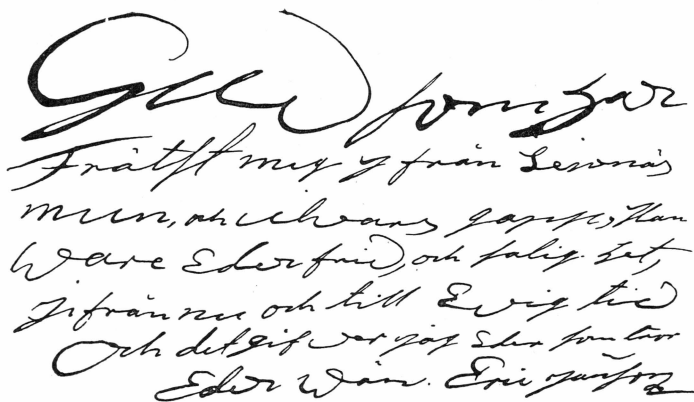 Gud som har
Frälsst mig ifrån Leionäs
mun, och ulvars gapp, Han
Ware Eder frid, och salig het,
ifrån nu och till Evig tid
Och det gifver jag Eder som tror
Eder Wän. Eric Jansson